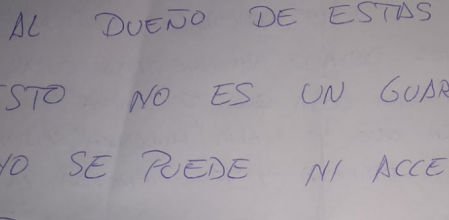 AL DUEÑO DE ESTAS
STO NO ES UN GUAR
NO SE PUEDE NI ACCE